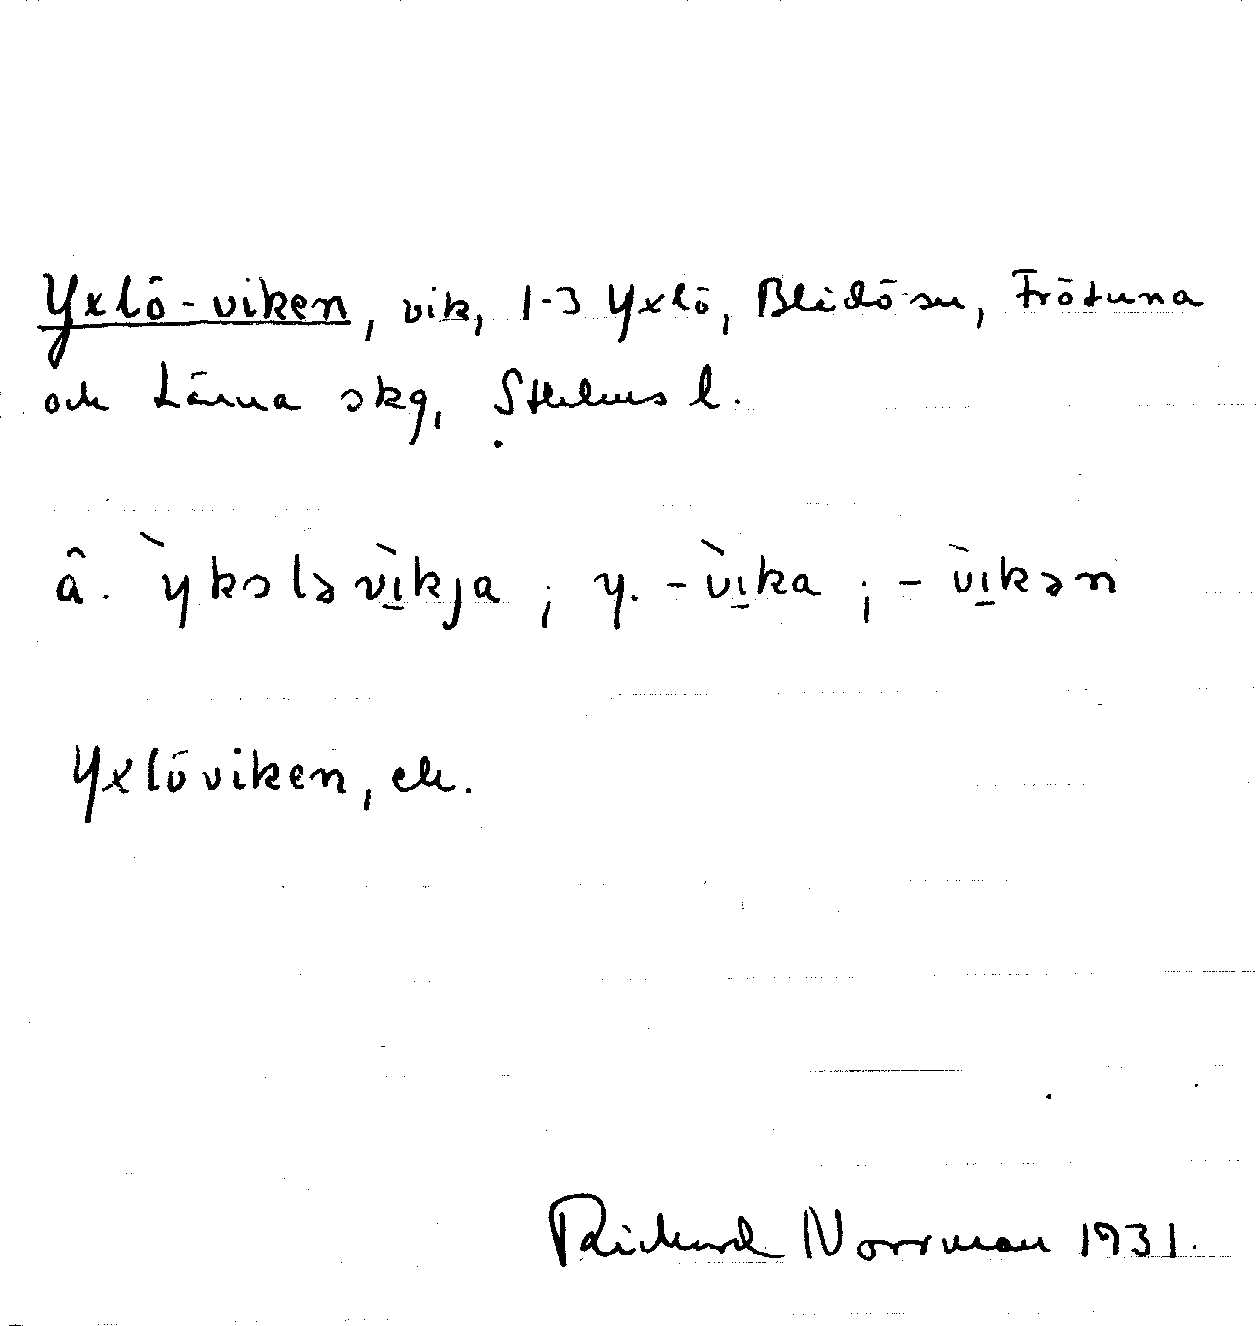 Yxlö-viken, vik, 1-3 Yxlö, Blidö sn, Frötuna
och Länna skg, Sthlms l.
â. `yksləvìkja ; y. -vìka ; -vìkən
Yxlöviken, ek.
Rickard Norrman 1931.